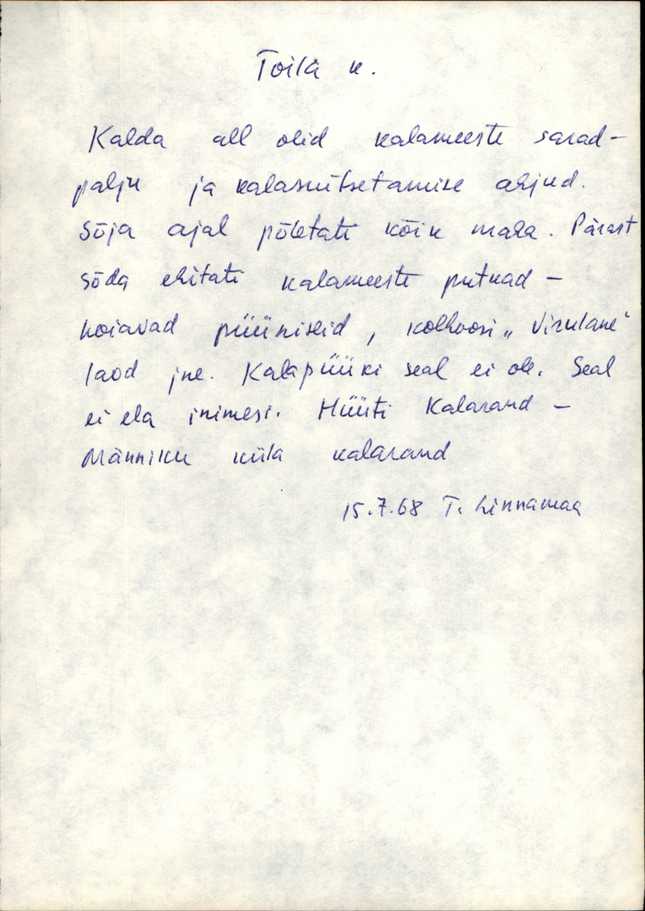 Toila k.
Kalda all olid kalameeste sarad-
palju ja kalasuitsetamise ahjud.
Sõja ajal põletati kõik maha. Pärast
sõda ehitati kalameeste putkad -
hoiavad püüniseid, kolhoosi „Virulane"
laod jne. Kalapüüki seal ei ole. Seal
ei ela inimesi. Hüüti Kalarand -
Männiku küla kalarand
15.7.68 T. Linnamaa